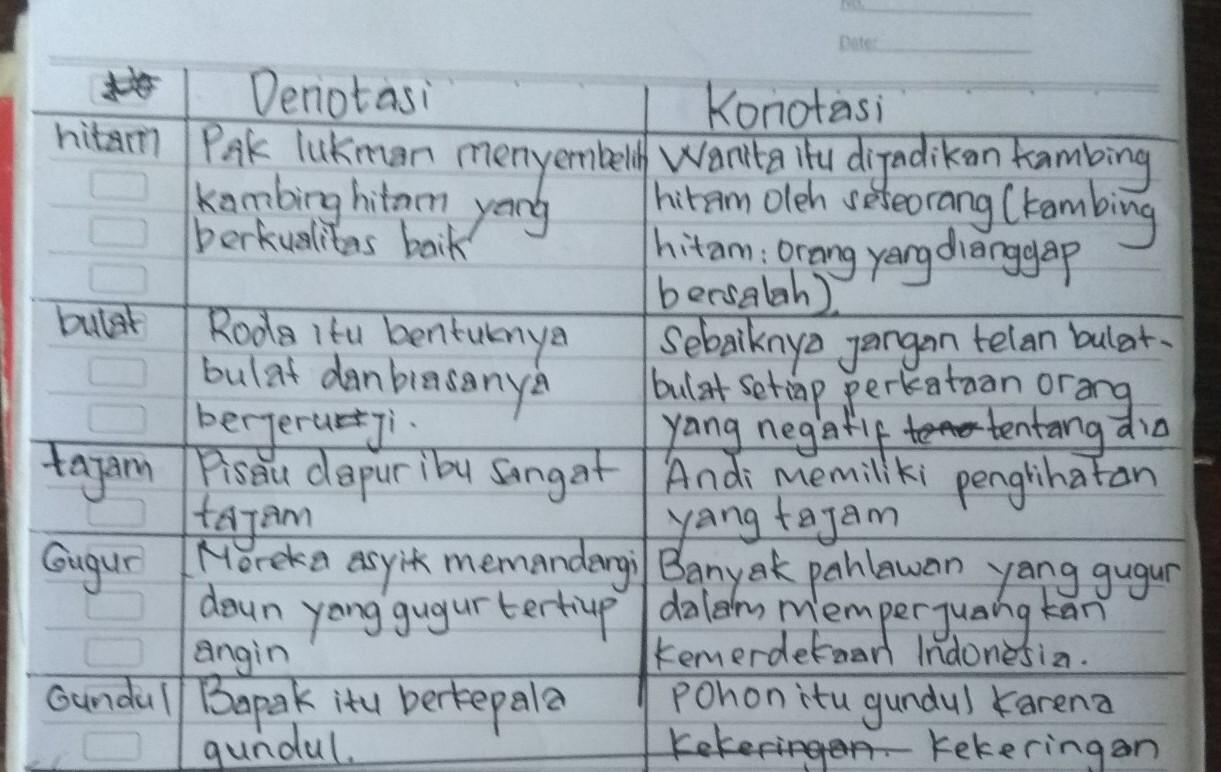 No.
Date:
Denotasi
Konotasi
hitam
Pak lukman menyembelih
kambing hitam yang
berkualitas baik
Wanita itu dijadikan kambing
hitam oleh seseorang (kambing
hitam: orang yang dianggap
bersalah)
bulat
Roda itu bentuknya
bulat dan biasanya
bergeruji.
Sebaiknya jangan telan bulat-
bulat setiap perkataan orang
yang negatif tentang dia
tajam
Pisau dapur ibu sangat
tajam
Andi memiliki penglihatan
yang tajam
Gugur
Mereka asyik memandangi
daun yang gugur tertiup
angin
Banyak pahlawan yang gugur
dalam memperjuangkan
kemerdekaan Indonesia.
Gundul
Bapak itu berkepala
gundul.
Pohon itu gundul karena
kekeringan. kekeringan